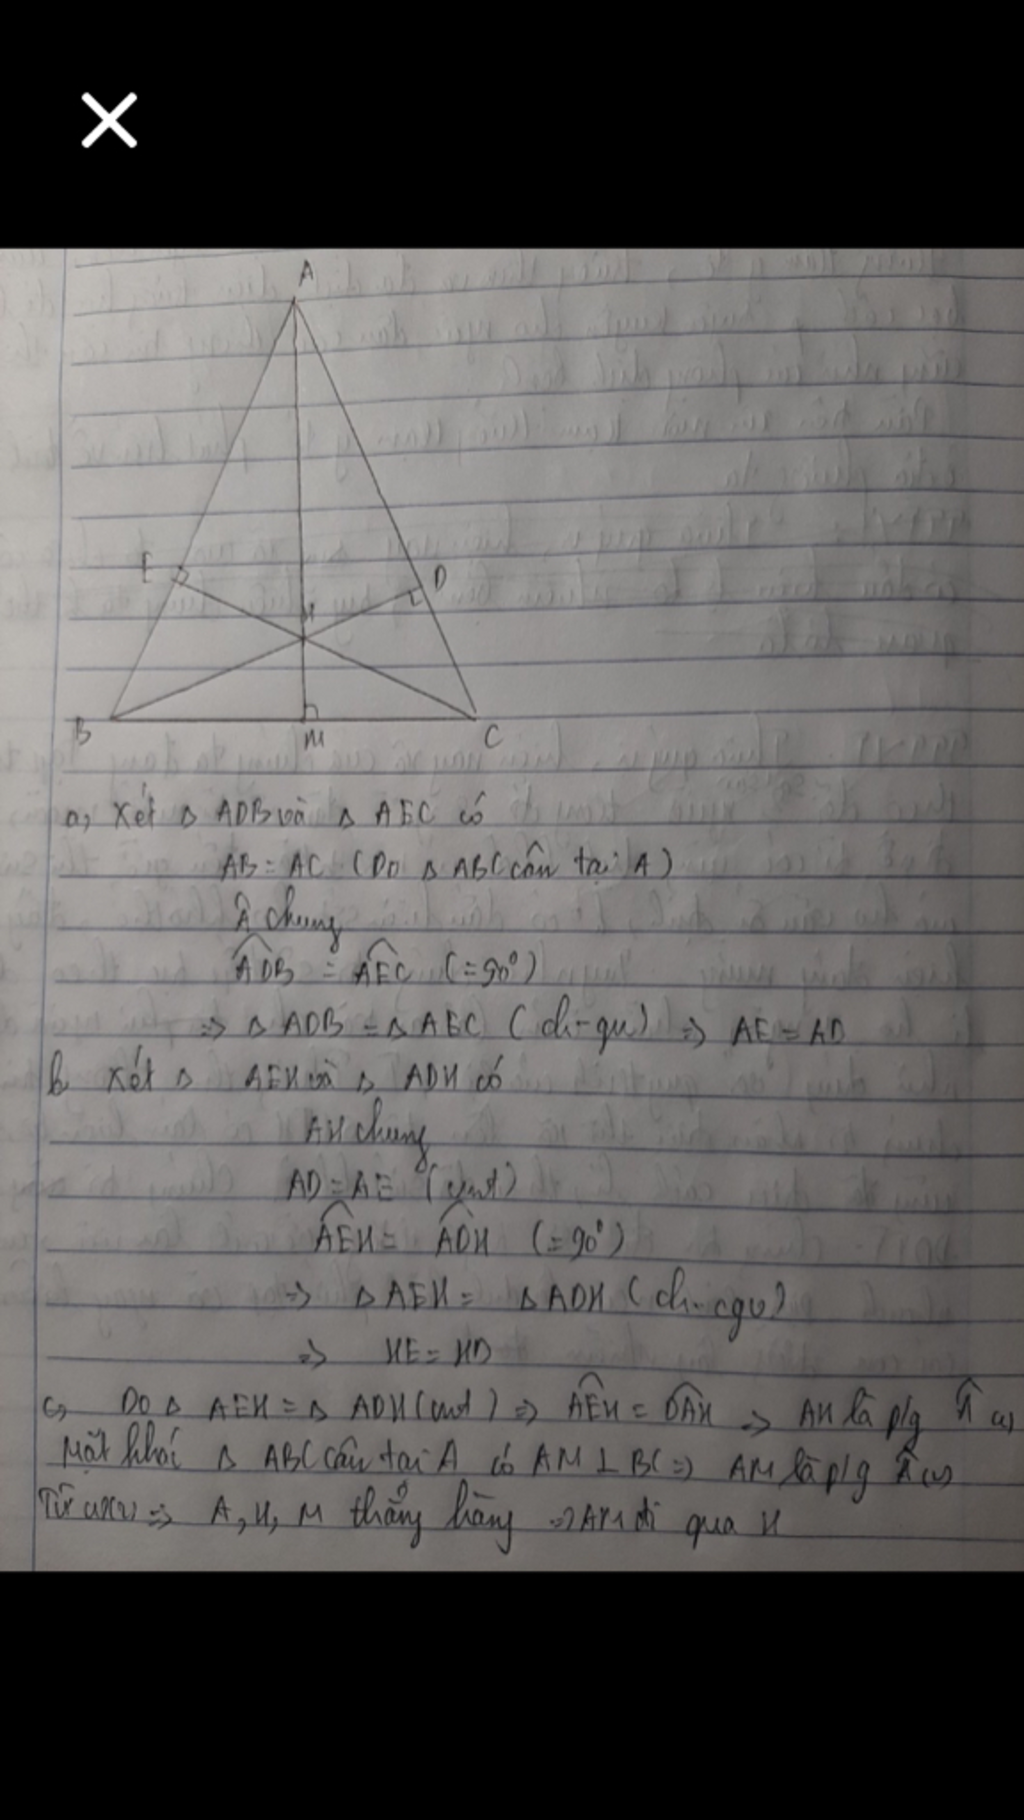 A
E
D
H
B
M
C
a, Xét Δ ADB và Δ AEC có
AB = AC (Do Δ ABC cân tại A)
Â chung
ADB = AEC (= 90°)
=> Δ ADB = Δ AEC (ch-gn) => AE = AD
b, Xét Δ AEH và Δ ADH có
AH chung
AD = AE (cmt)
AEH = ADH (= 90°)
=> Δ AEH = Δ ADH (ch-cgv)
=> HE = HD
c, Do Δ AEH = Δ ADH (cmt) => AEH = DAH => AH là p/g Â (1)
Mặt khác Δ ABC cân tại A có AM ⊥ BC => AM là p/g Â (2)
Từ (1)(2) => A, H, M thẳng hàng => AM đi qua H